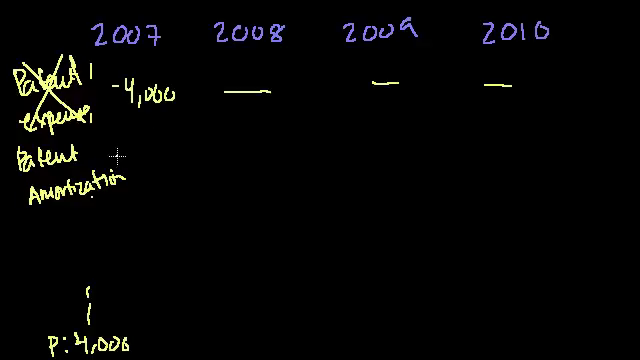 2007 2008 2009 2010
Patent
expense
-4,000 — — —
Patent
Amortization
P: 4,000